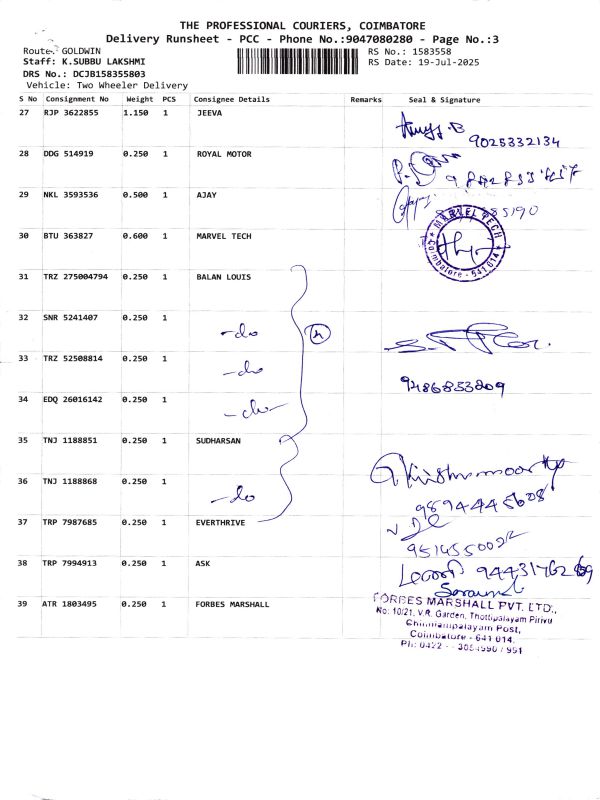 THE PROFESSIONAL COURIERS, COIMBATORE
Delivery Runsheet - PCC - Phone No.:9047080280 - Page No.:3
Route: GOLDWIN
RS No.: 1583558
Staff: K.SUBBU LAKSHMI
RS Date: 19-Jul-2025
DRS No.: DCJB158355803
Vehicle: Two Wheeler Delivery
S No Consignment No Weight PCS Consignee Details Remarks Seal & Signature
27 RJP 3622855 1.150 1 JEEVA
9025332134
28 DDG 514919 0.250 1 ROYAL MOTOR
29 NKL 3593536 0.500 1 AJAY
30 BTU 363827 0.600 1 MARVEL TECH
MARVEL TECH
Coimbatore - 641 014
31 TRZ 275004794 0.250 1 BALAN LOUIS
32 SNR 5241407 0.250 1
-do
33 TRZ 52508814 0.250 1
-do
9486853209
34 EDQ 26016142 0.250 1
-do
35 TNJ 1188851 0.250 1 SUDHARSAN
36 TNJ 1188868 0.250 1
-do
9894445608
37 TRP 7987685 0.250 1 EVERTHRIVE
38 TRP 7994913 0.250 1 ASK
39 ATR 1803495 0.250 1 FORBES MARSHALL
FORBES MARSHALL PVT. LTD.,
No: 10/21, V.R. Garden, Thottipalayam Pirivu
Chinniampalayam Post,
Coimbatore - 641 014.